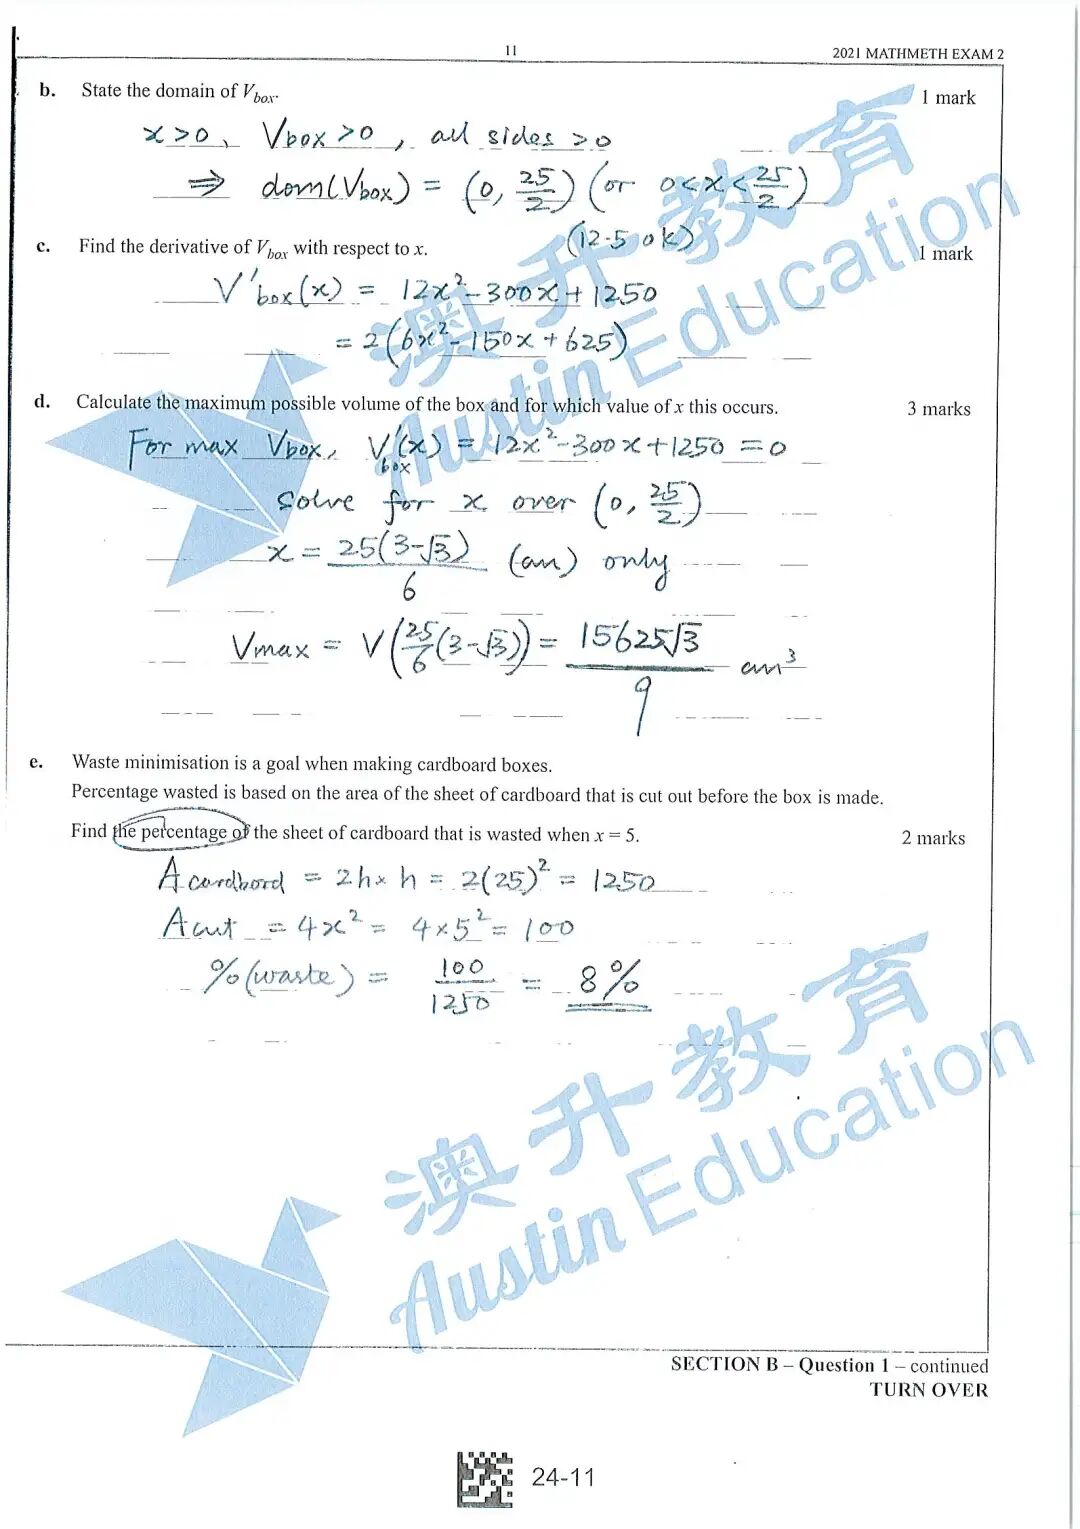 11
2021 MATHMETH EXAM 2
b. State the domain of V_box. 1 mark
x>0, Vbox>0, all sides >0
⇒ dom(Vbox) = (0, 25/2) (or 0<x<25/2)
(12.5 ok)
c. Find the derivative of V_box with respect to x. 1 mark
V'box(x) = 12x²-300x+1250
= 2(6x²-150x+625)
d. Calculate the maximum possible volume of the box and for which value of x this occurs. 3 marks
For max Vbox, V'box(x) = 12x²-300x+1250 = 0
Solve for x over (0, 25/2)
x = 25(3-√3)/6 (cm) only
Vmax = V(25/6(3-√3)) = 15625√3/9 cm³
e. Waste minimisation is a goal when making cardboard boxes.
Percentage wasted is based on the area of the sheet of cardboard that is cut out before the box is made.
Find the percentage of the sheet of cardboard that is wasted when x = 5. 2 marks
A cardbord = 2h × h = 2(25)² = 1250
A cut = 4x² = 4×5² = 100
%(waste) = 100/1250 = 8%
澳升教育
Austin Education
澳升教育
Austin Education
SECTION B – Question 1 – continued
TURN OVER
24-11